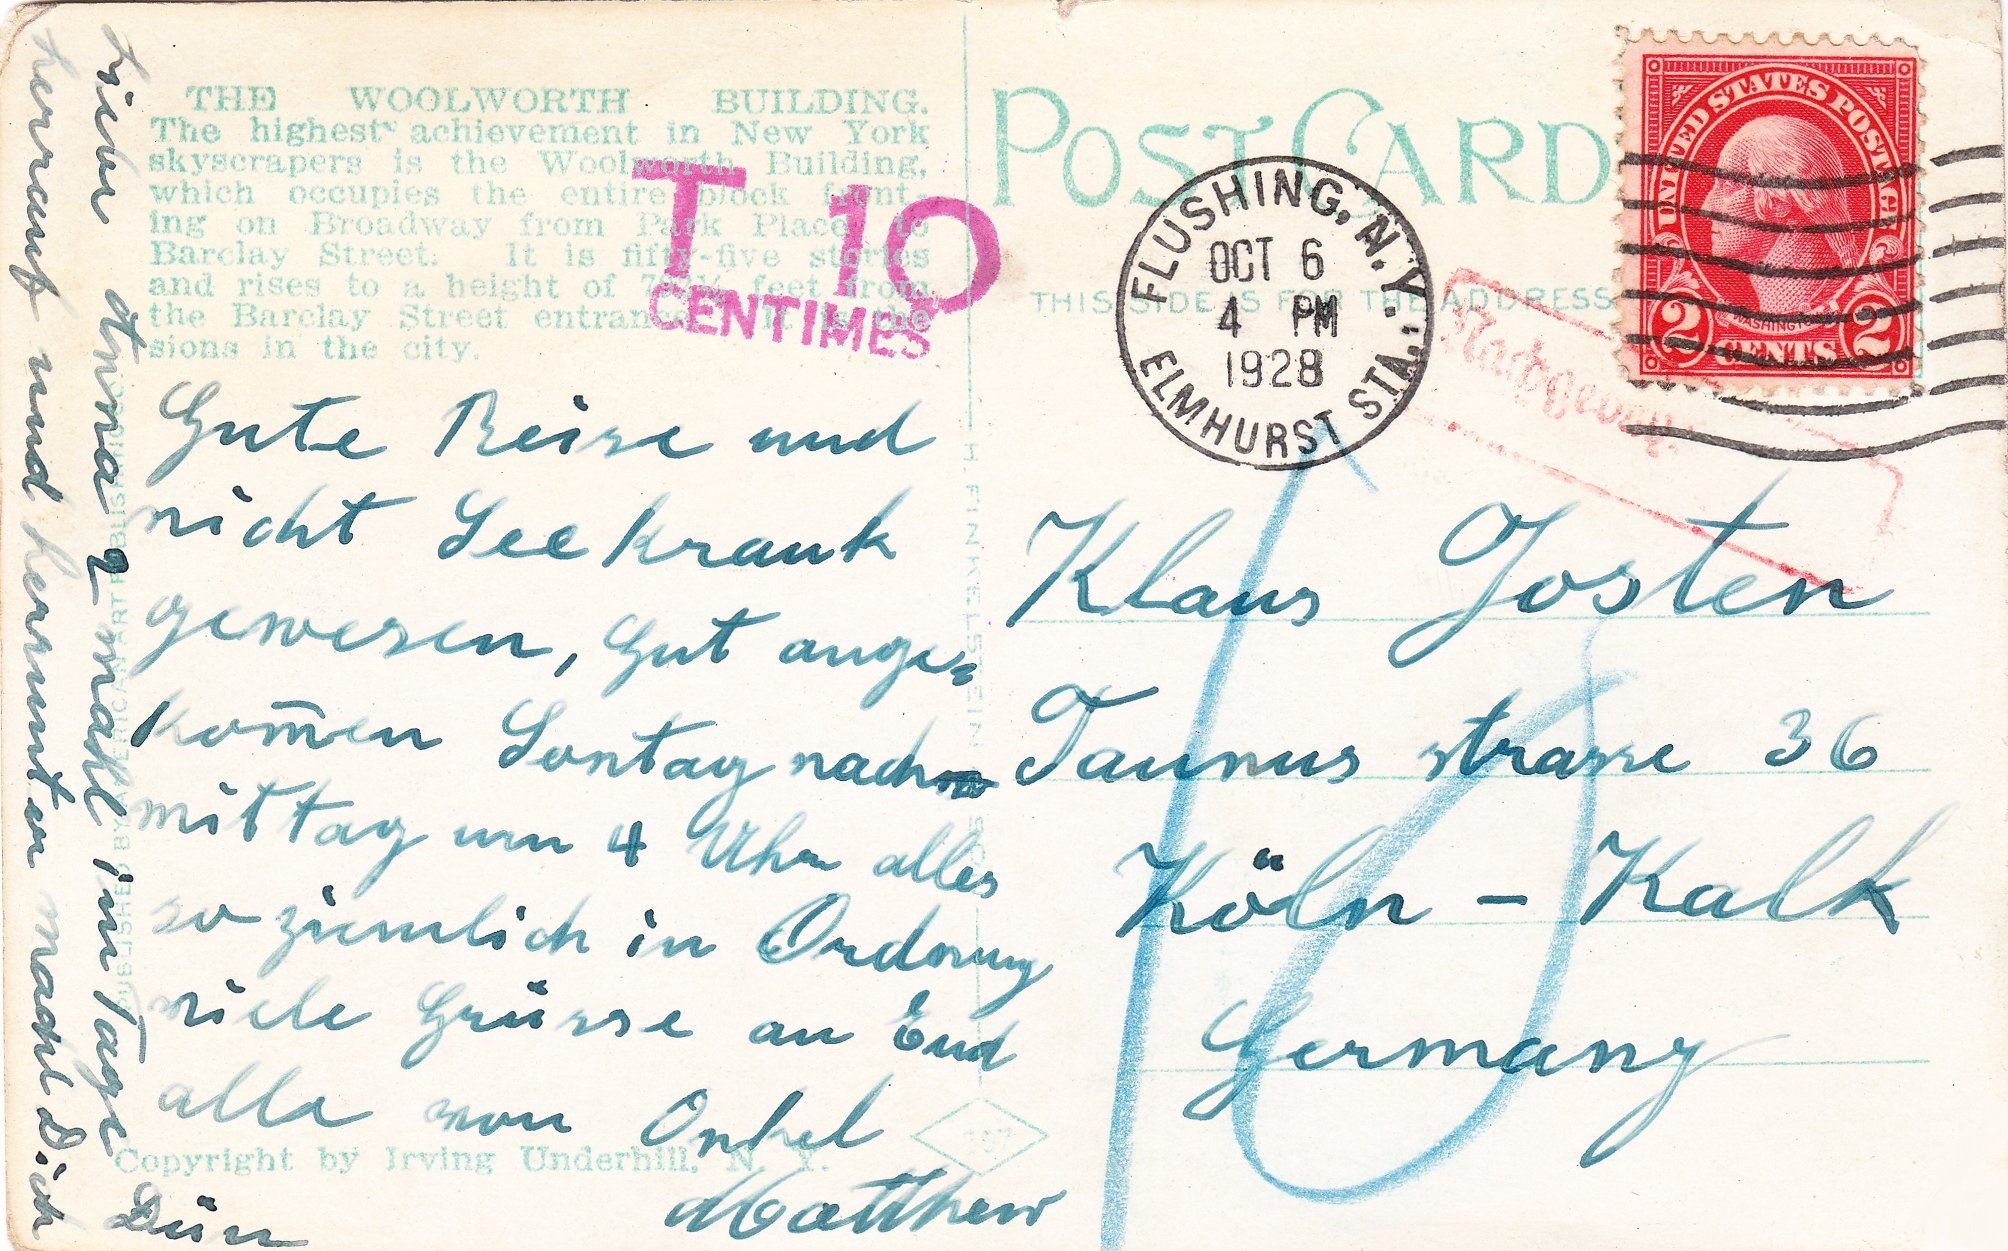 THE WOOLWORTH BUILDING.
The highest achievement in New York
skyscrapers is the Woolworth Building,
which occupies the entire block front-
ing on Broadway from Park Place to
Barclay Street. It is fifty-five stories
and rises to a height of feet from
the Barclay Street entrance. It is the
sions in the city.
T 10
CENTIMES
Gute Reise und
nicht Seekrank
gewesen, Gut ange=
kom̄en Sontag nach
mittag um 4 Uhr alles
so ziemlich in Ordnung
viele Grüsse an Eud
alle von Onkel
Matthew
Lieber 2 mahl im Tage
herrauf und herunter macht Dich
Dün
PUBLISHED BY AMERICAN ART PUBLISHING CO.
H. FINKELSTEIN & SON
Copyright by Irving Underhill, N. Y.
POST CARD
THIS SIDE IS FOR THE ADDRESS
FLUSHING, N.Y.
OCT 6
4 PM
1928
ELMHURST STA.
UNITED STATES POSTAGE
WASHINGTON
2 CENTS 2
Klaus Josten
Taunus strasse 36
Köln - Kalk
Germany
10